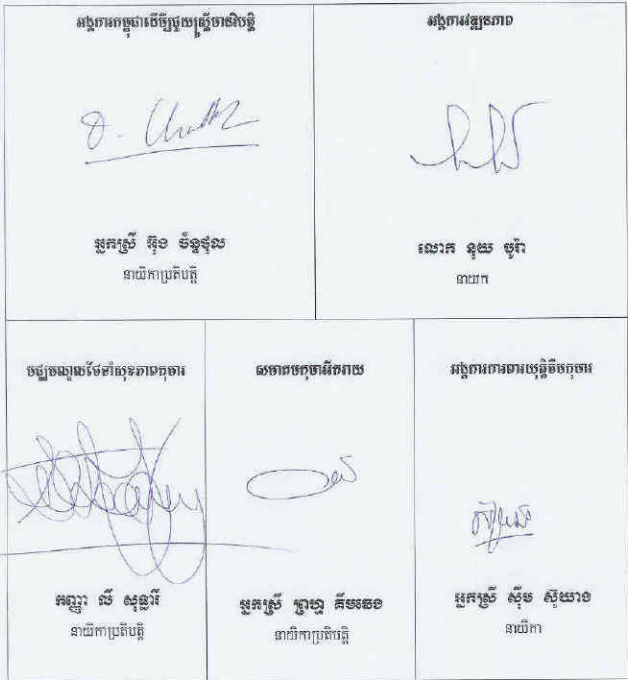 អង្គការកម្ពុជាដើម្បីជួយស្ត្រីមានវិបត្តិ
អ្នកស្រី អ៊ុង ច័ន្ទថុល
នាយិកាប្រតិបត្តិ
អង្គការវឌ្ឍនភាព
លោក នុយ បូរ៉ា
នាយក
មជ្ឈមណ្ឌលថែទាំសុខភាពកុមារ
កញ្ញា លី សុទ្ធារី
នាយិកាប្រតិបត្តិ
សមាគមកុមាររីករាយ
អ្នកស្រី គឹមឆេង
នាយិកាប្រតិបត្តិ
អង្គការការពារយុត្តិធម៌កុមារ
អ្នកស្រី ស៊ឹម ស៊ូយាង
នាយិកា